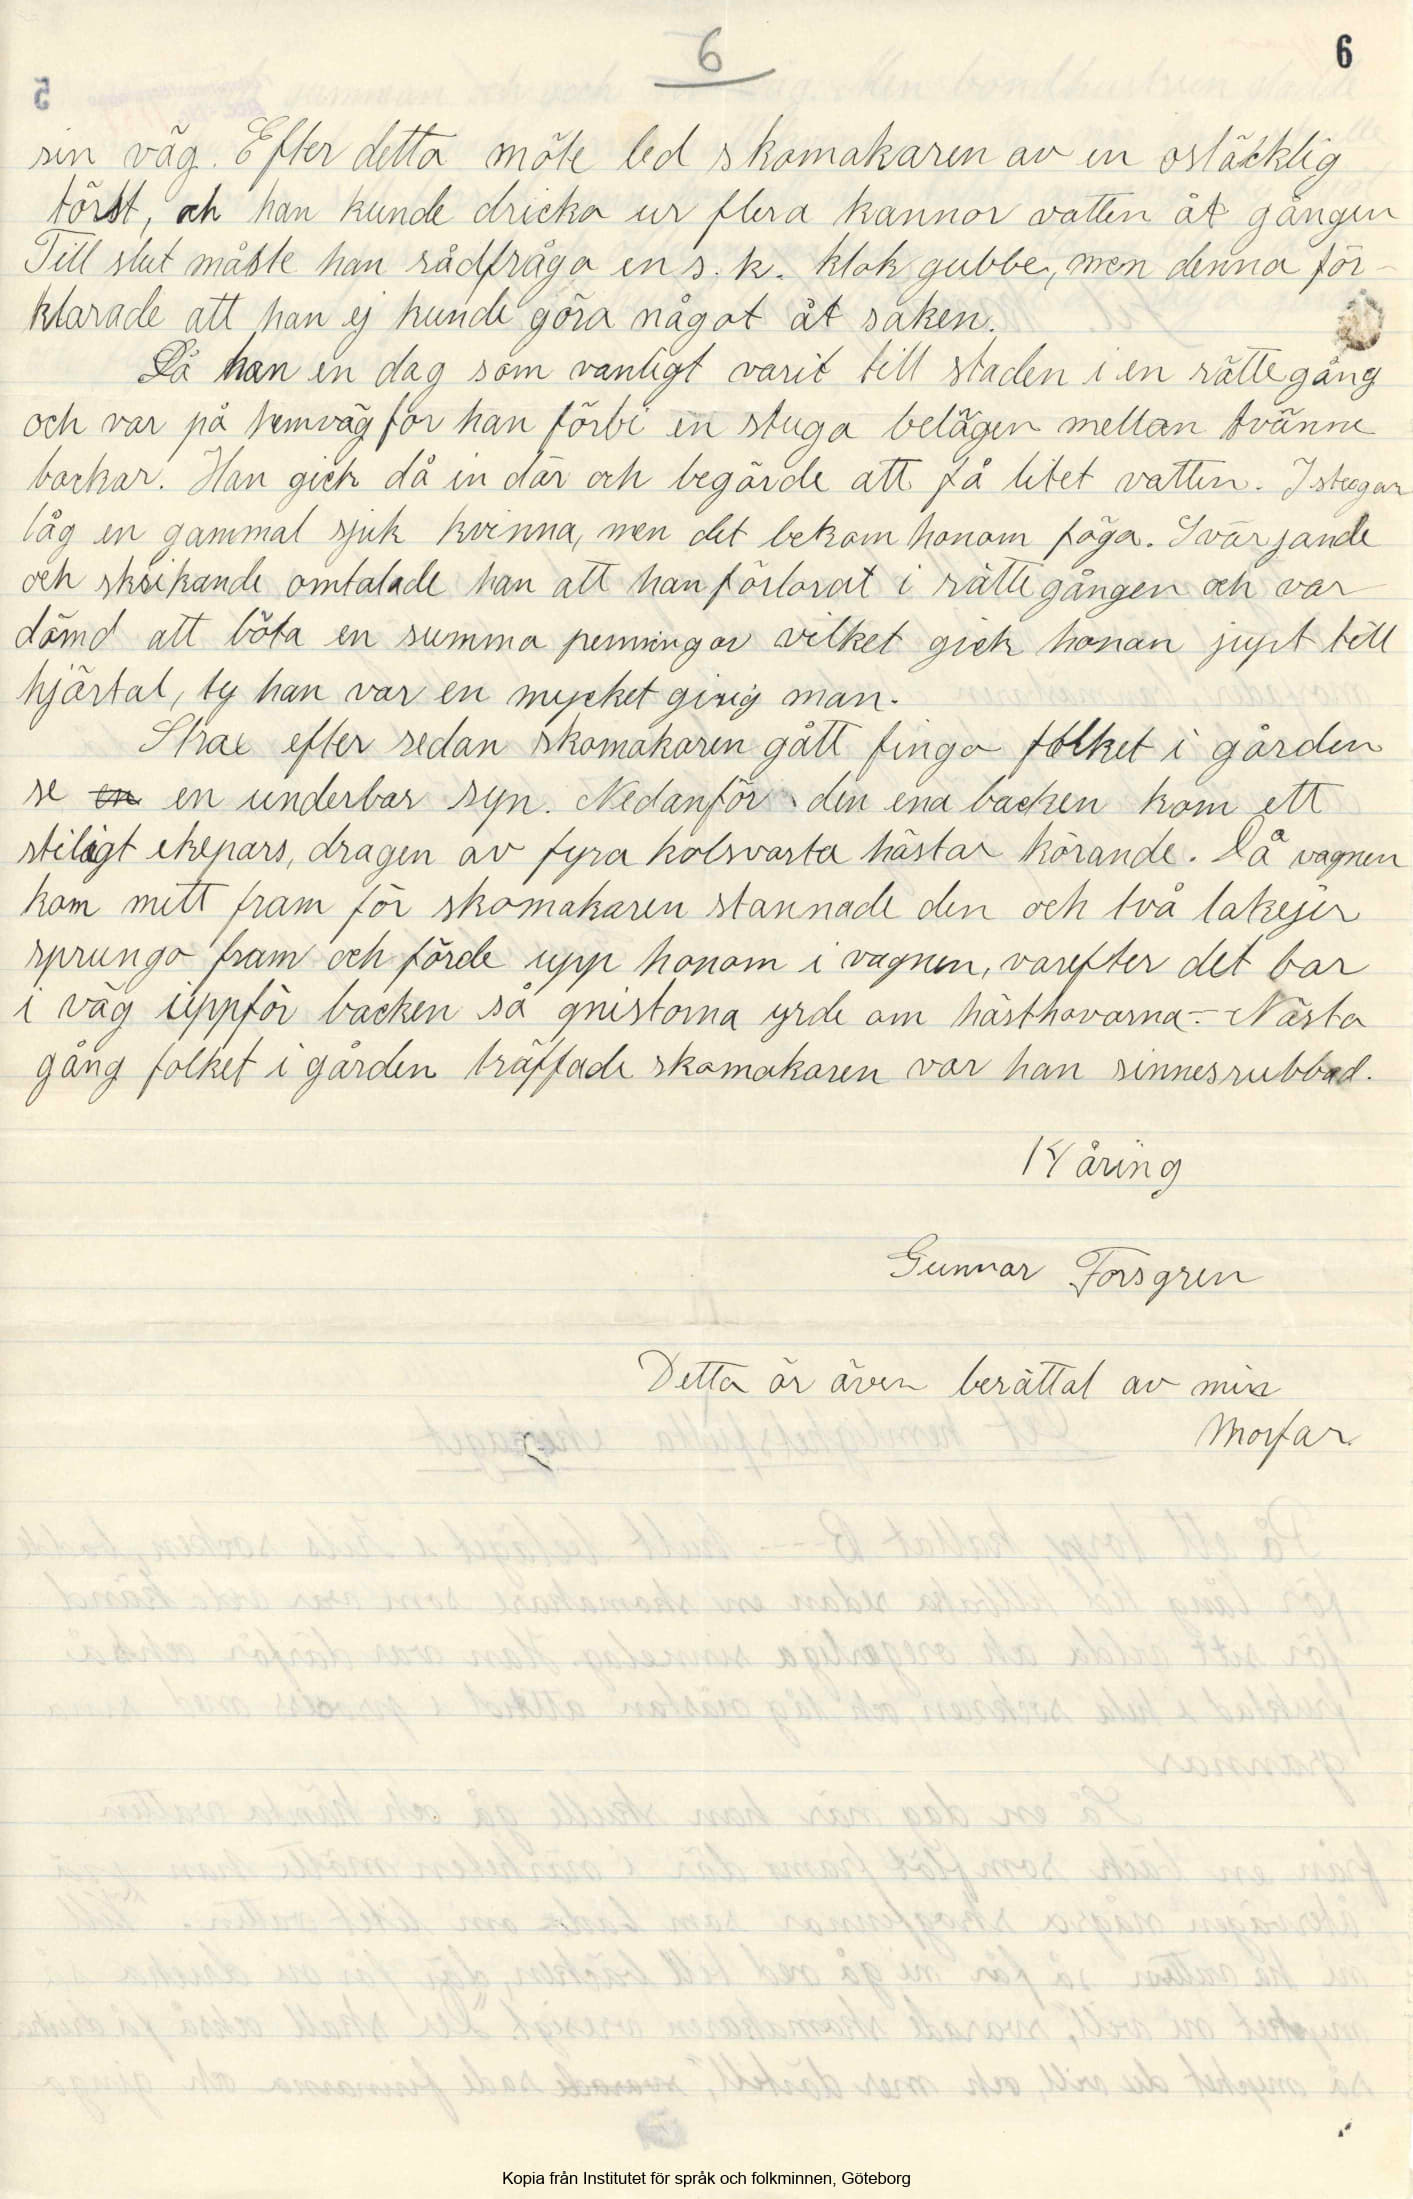 6
6
sin väg. Efter detta möte led skomakaren av en osläcklig
törst, och han kunde dricka ur flera kannor vatten åt gången
Till slut måste han rådfråga en s.k. klok gubbe, men denna för-
klarade att han ej kunde göra något åt saken.
Då han en dag som vanligt varit till staden i en rättegång
och var på hemväg for han förbi en stuga belägen mellan tvänne
backar. Han gick då in där och begärde att få litet vatten. I stugan
låg en gammal sjuk kvinna, men det bekom honom föga. Svärjande
och skrikande omtalade han att han förlorat i rättegången och var
dömd att böta en summa penningar vilket gick honan jupt till
hjärtat, ty han var en mycket girig man.
Strax efter sedan skomakaren gått fingo folket i gården
se en en underbar syn. Nedanför den ena backen kom ett
stiligt ekepars, dragen av fyra kolsvarta hästar körande. Då vagnen
kom mitt fram för skomakaren stannade den och två lakejer
sprungo fram och förde upp honom i vagnen, varefter det bar
i väg uppför backen så gnistorna yrde om hästhovarna. - Nästa
gång folket i gården träffade skomakaren var han sinnesrubbad.
14 åring
Gunnar Forsgren
Detta är även berättat av min
Morfar.
Kopia från Institutet för språk och folkminnen, Göteborg